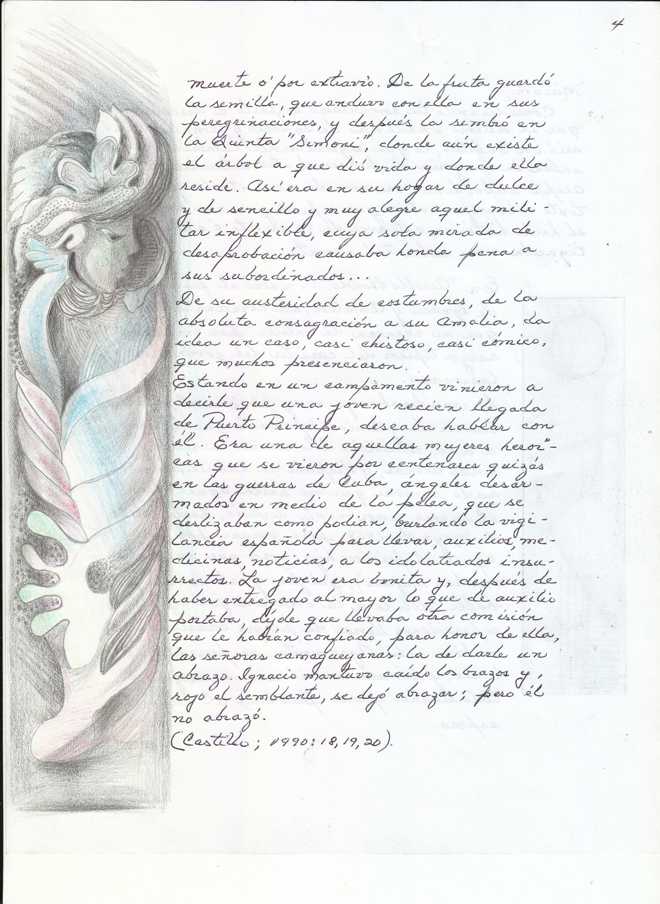 4
muerte ó por extravío. De la fruta guardó
la semilla, que anduvo con ella en sus
peregrinaciones, y después la sembró en
la Quinta "Simoni", donde aún existe
el árbol a que dió vida y donde ella
reside. Así era en su hogar de dulce
y de sencillo y muy alegre aquel mili-
tar inflexible, cuya sola mirada de
desaprobación causaba honda pena a
sus subordinados...
De su austeridad de costumbres, de la
absoluta consagración a su Amalia, da
idea un caso, casi chistoso, casi cómico,
que muchos presenciaron.
Estando en un campamento vinieron a
decirle que una joven recien llegada
de Puerto Príncipe, deseaba hablar con
él. Era una de aquellas mujeres heroi-
cas que se vieron por centenares quizás
en las guerras de Cuba, ángeles desar-
mados en medio de la pelea, que se
deslizaban como podían, burlando la vigi-
lancia española para llevar, auxilios, me-
dicinas, noticias, a los idolatrados insu-
rrectos. La joven era bonita y, después de
haber entregado al mayor lo que de auxilio
portaba, díjole que llevaba otra comisión
que le habían confiado, para honor de ella,
las señoras camagueyanas: la de darle un
abrazo. Ignacio mantuvo caído los brazos y,
rojo el semblante, se dejó abrazar; pero él
no abrazó.
(Castillo; 1990: 18, 19, 20).